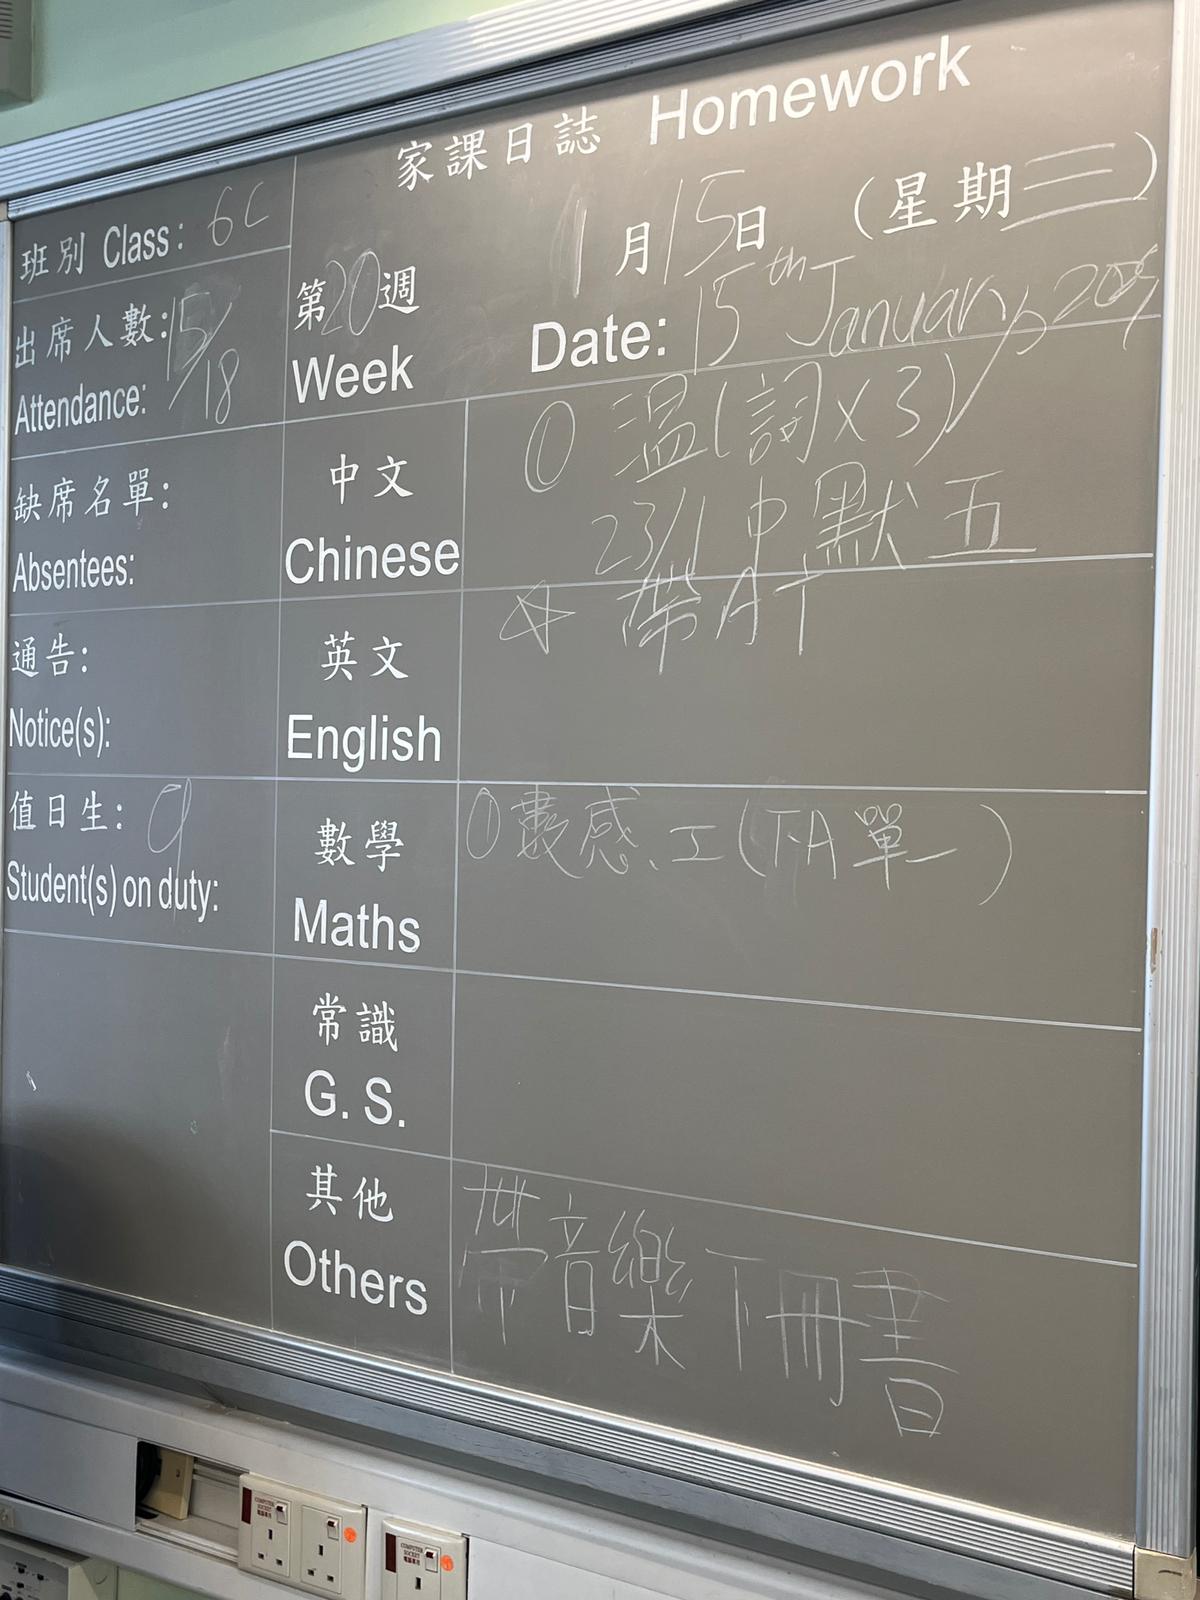 家課日誌 Homework
班別 Class: 6C
1月15日 (星期三)
第20週
Week
Date: 15th January, 2025
出席人數: 15/18
Attendance:
缺席名單:
Absentees:
中文
Chinese
① 溫(詞x3)
23/1 中默五
☆ 帶AT
通告:
Notice(s):
英文
English
值日生: 9
Student(s) on duty:
數學
Maths
① 數感、工(下A單一)
常識
G. S.
其他
Others
帶音樂下冊書
COMPUTER
SOCKET
電腦專用
COMPUTER
SOCKET
電腦專用